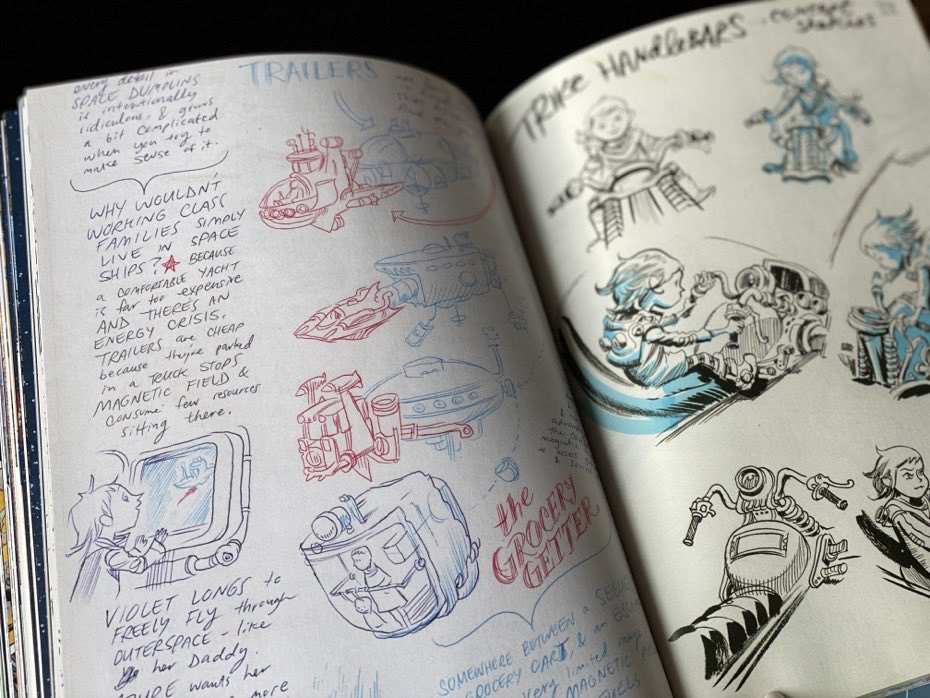 every detail in
SPACE DUMPLINS
is intentionally
ridiculous, & grows
a bit complicated
when you try to
make sense of it.
WHY WOULDN'T
WORKING CLASS
FAMILIES SIMPLY
LIVE IN SPACE
SHIPS? BECAUSE
a COMFORTABLE YACHT
is far too expensive
AND THERE'S AN
ENERGY CRISIS.
TRAILERS are CHEAP
because they're parked
in a TRUCK STOPS
MAGNETIC FIELD &
consume few resources
sitting there.
VIOLET LONGS to
FREELY FLY through
OUTERSPACE - like
her Daddy.
wants her
more
TRAILERS
the
GROCERY
GETTER
SOMEWHERE BETWEEN a
GROCERY CART, & an
very limited
MAGNETIC
TRIKE HANDLEBARS -